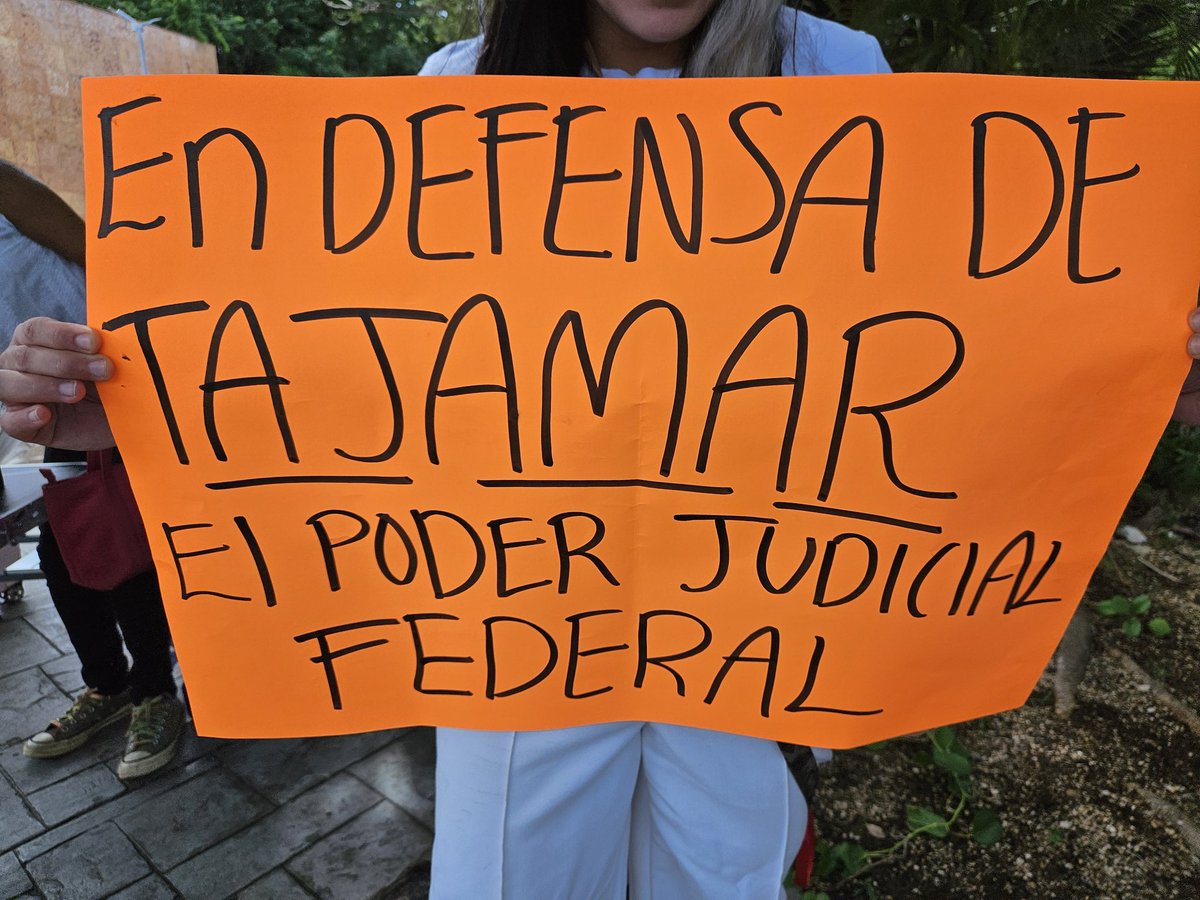 En DEFENSA DE
TAJAMAR
El PODER JUDICIAL
FEDERAL